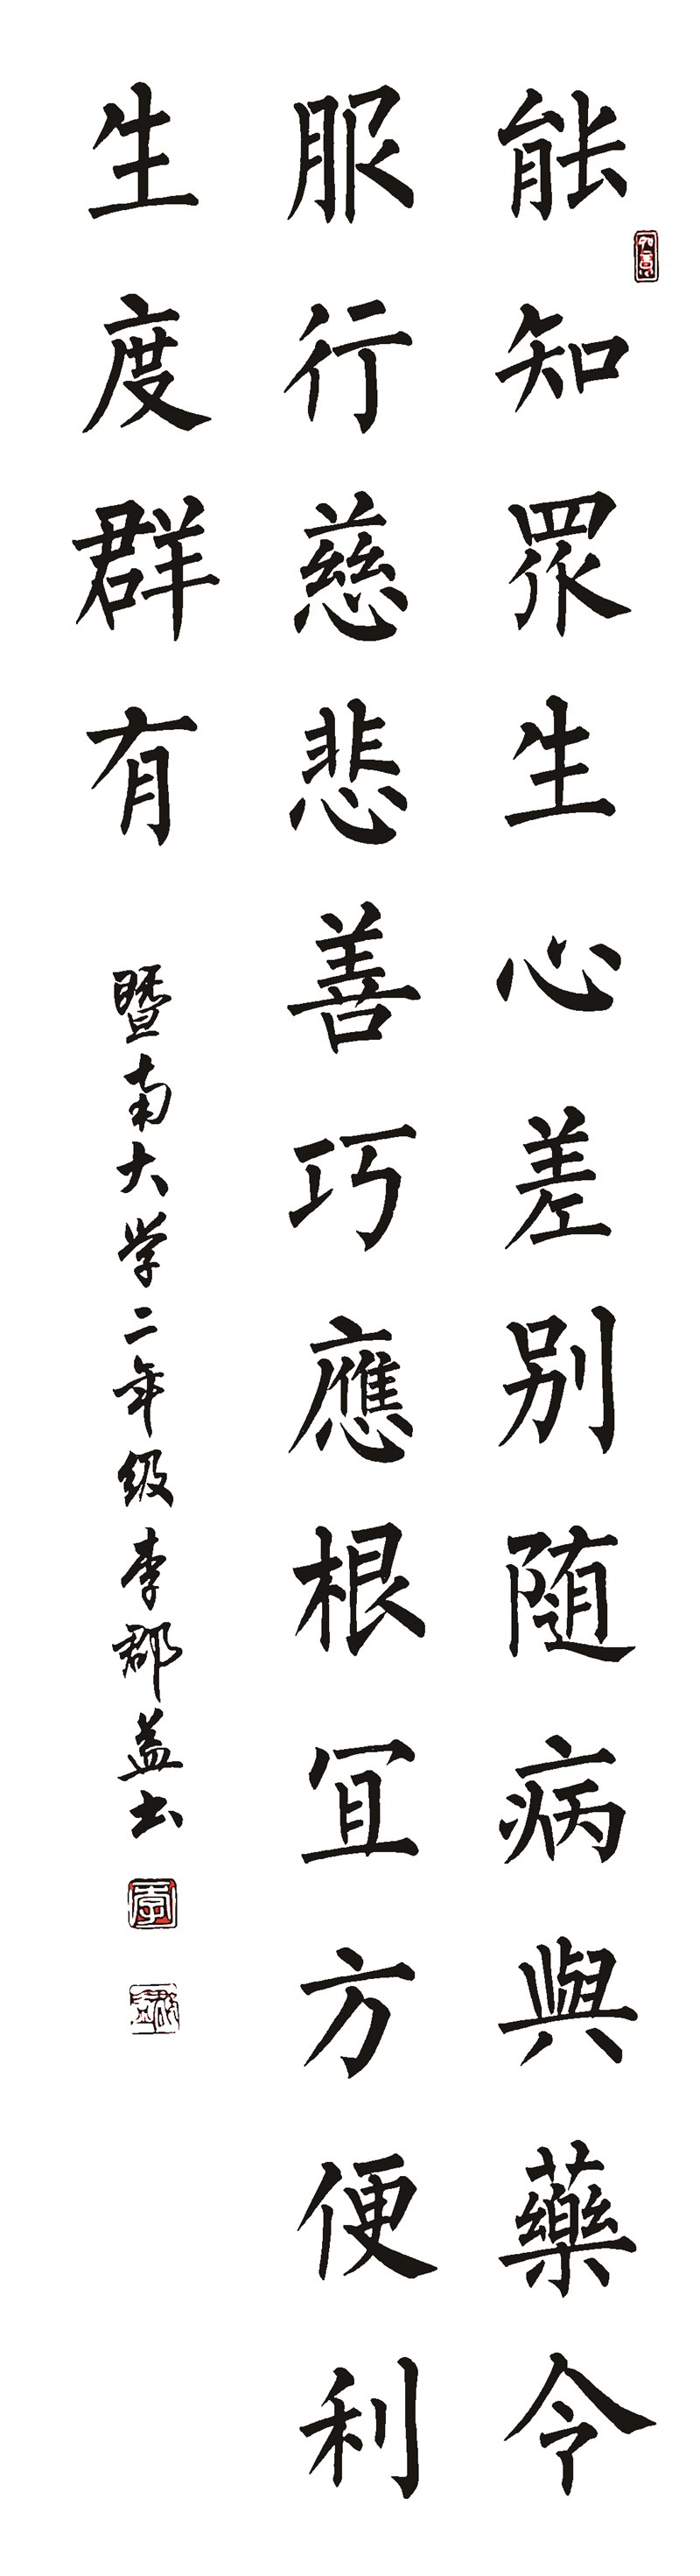 能知眾生心差别随病與藥令
服行慈悲善巧應根宜方便利
生度群有
暨南大学二年级李郡益书
李